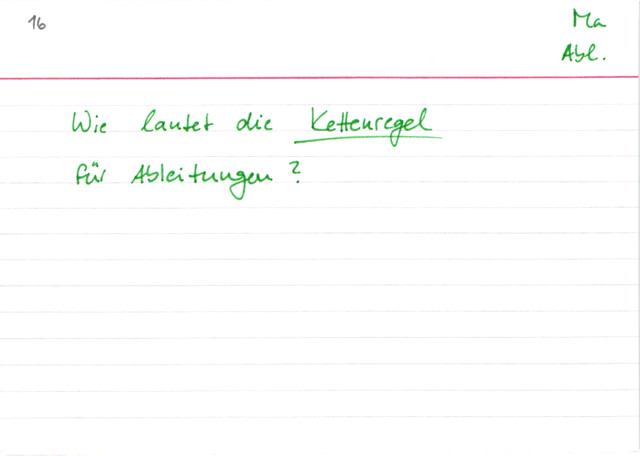 16
Ma
Abl.
Wie lautet die Kettenregel
für Ableitungen?